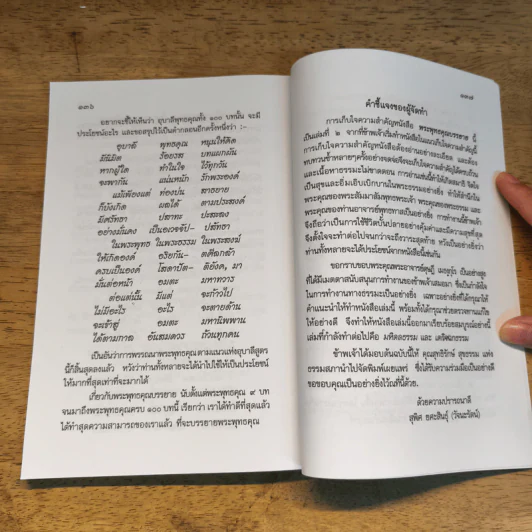 ๑๓๖
อยากจะชี้ให้เห็นว่า อุบาลีพุทธคุณทั้ง ๑๐๐ บทนั้น จะมี
ประโยชน์อะไร และขอสรุปไว้เป็นคำกลอนอีกครั้งหนึ่งว่า :-
อุบาลี พุทธคุณ หนุนให้คิด
มีนิมิต ร้อยรส บทแผกผัน
หากผู้ใด ทำในใจ ไว้ทุกวัน
จะพากัน แน่นหนัก รักพระองค์
แม้เพียงแต่ ท่องบ่น สาธยาย
ก็บังเกิด ผลได้ ตามประสงค์
มีศรัทธา ปสาทะ ประสงค์
อย่างมั่นคง เป็นอเวจจัป- ปสัทธา
ในพระพุทธ ในพระธรรม ในพระสงฆ์
ให้เกิดองค์ อริยกัน- ตศีลกล้า
ครบเป็นองค์ โสดาปัต- ติยังค, มา
มั่นต่อหน้า อมตะ มหาทวาร
ต่อแต่นั้น มีแต่ จะก้าวไป
ไม่มีอะไร อะไร จะตายด้าน
จะเข้าสู่ อมตะ มหานิพพาน
ได้ตามกาล อันสมควร ถ้วนทุกคน
เป็นอันว่าการพรรณนาพระพุทธคุณตามแนวแห่งอุบาลีสูตร
นี้ก็สิ้นสุดลงแล้ว หวังว่าท่านทั้งหลายจะได้นำไปใช้ให้เป็นประโยชน์
ให้มากที่สุดเท่าที่จะมากได้
เกี่ยวกับพระพุทธคุณบรรยาย นับตั้งแต่พระพุทธคุณ ๙ บท
จนมาถึงพระพุทธคุณครบ ๑๐๐ บทนี้ เรียกว่า เราได้ทำดีที่สุดแล้ว
ได้ทำสุดความสามารถของเราแล้ว ที่จะบรรยายพระพุทธคุณ
๑๓๗
คำชี้แจงของผู้จัดทำ
การเก็บใจความสำคัญหนังสือ พระพุทธคุณบรรยาย นี้
เป็นเล่มที่ ๒ จากที่ข้าพเจ้าเริ่มทำหนังสือในแนวเก็บใจความสำคัญนี้
การเก็บใจความสำคัญหนังสือต้องอ่านอย่างละเอียด และต้อง
ทบทวนซ้ำหลายๆครั้งอย่างจดจ่อจึงจะเก็บใจความสำคัญได้ครบถ้วน
และเนื้อหาธรรมะไม่ขาดตอน การอ่านเช่นนี้ทำให้เกิดสมาธิ จิตใจ
เป็นสุขและอิ่มเอิบเบิกบานในพระธรรมอย่างยิ่ง ทำให้สำนึกใน
พระคุณของพระสัมมาสัมพุทธพระเจ้า พระคุณของพระธรรม และ
พระคุณของท่านอาจารย์พุทธทาสเป็นอย่างยิ่ง การทำงานนี้ข้าพเจ้า
จึงถือว่าเป็นการใช้ชีวิตบั้นปลายอย่างคุ้มค่าและมีความสุขที่สุด
จึงตั้งใจจะทำต่อไปจนกว่าจะถึงวาระสุดท้าย หวังเป็นอย่างยิ่งว่า
ท่านทั้งหลายจะได้ประโยชน์จากหนังสือนี้เช่นกัน
ขอกราบขอบพระคุณพระอาจารย์ดุษฎี เมธงฺกุโร เป็นอย่างสูง
ที่ได้มีเมตตาสนับสนุนการทำงานของข้าพเจ้าเสมอมา ซึ่งเป็นกำลังใจ
ในการทำงานทางธรรมะเป็นอย่างยิ่ง เฉพาะอย่างยิ่งที่ได้กรุณาให้
คำแนะนำให้ทำหนังสือเล่มนี้ พร้อมทั้งได้กรุณาช่วยตรวจทานแก้ไข
ให้อย่างดี จึงทำให้หนังสือเล่มนี้ออกมาเรียบร้อยสมบูรณ์อย่างนี้
เล่มที่กำลังทำต่อไปคือ มหิดลธรรม และ เตกิจฉกธรรม
ข้าพเจ้าได้มอบต้นฉบับนี้ให้ คุณสุทธิรักษ์ สุขธรรม แห่ง
ธรรมสภานำไปจัดพิมพ์เผยแพร่ ซึ่งได้รับความร่วมมือเป็นอย่างดี
ขอขอบคุณเป็นอย่างยิ่งไว้ณที่นี้ด้วย.
ด้วยความปรารถนาดี
สุพิศ ยศะสินธุ์ (วัจนะรัตน์)